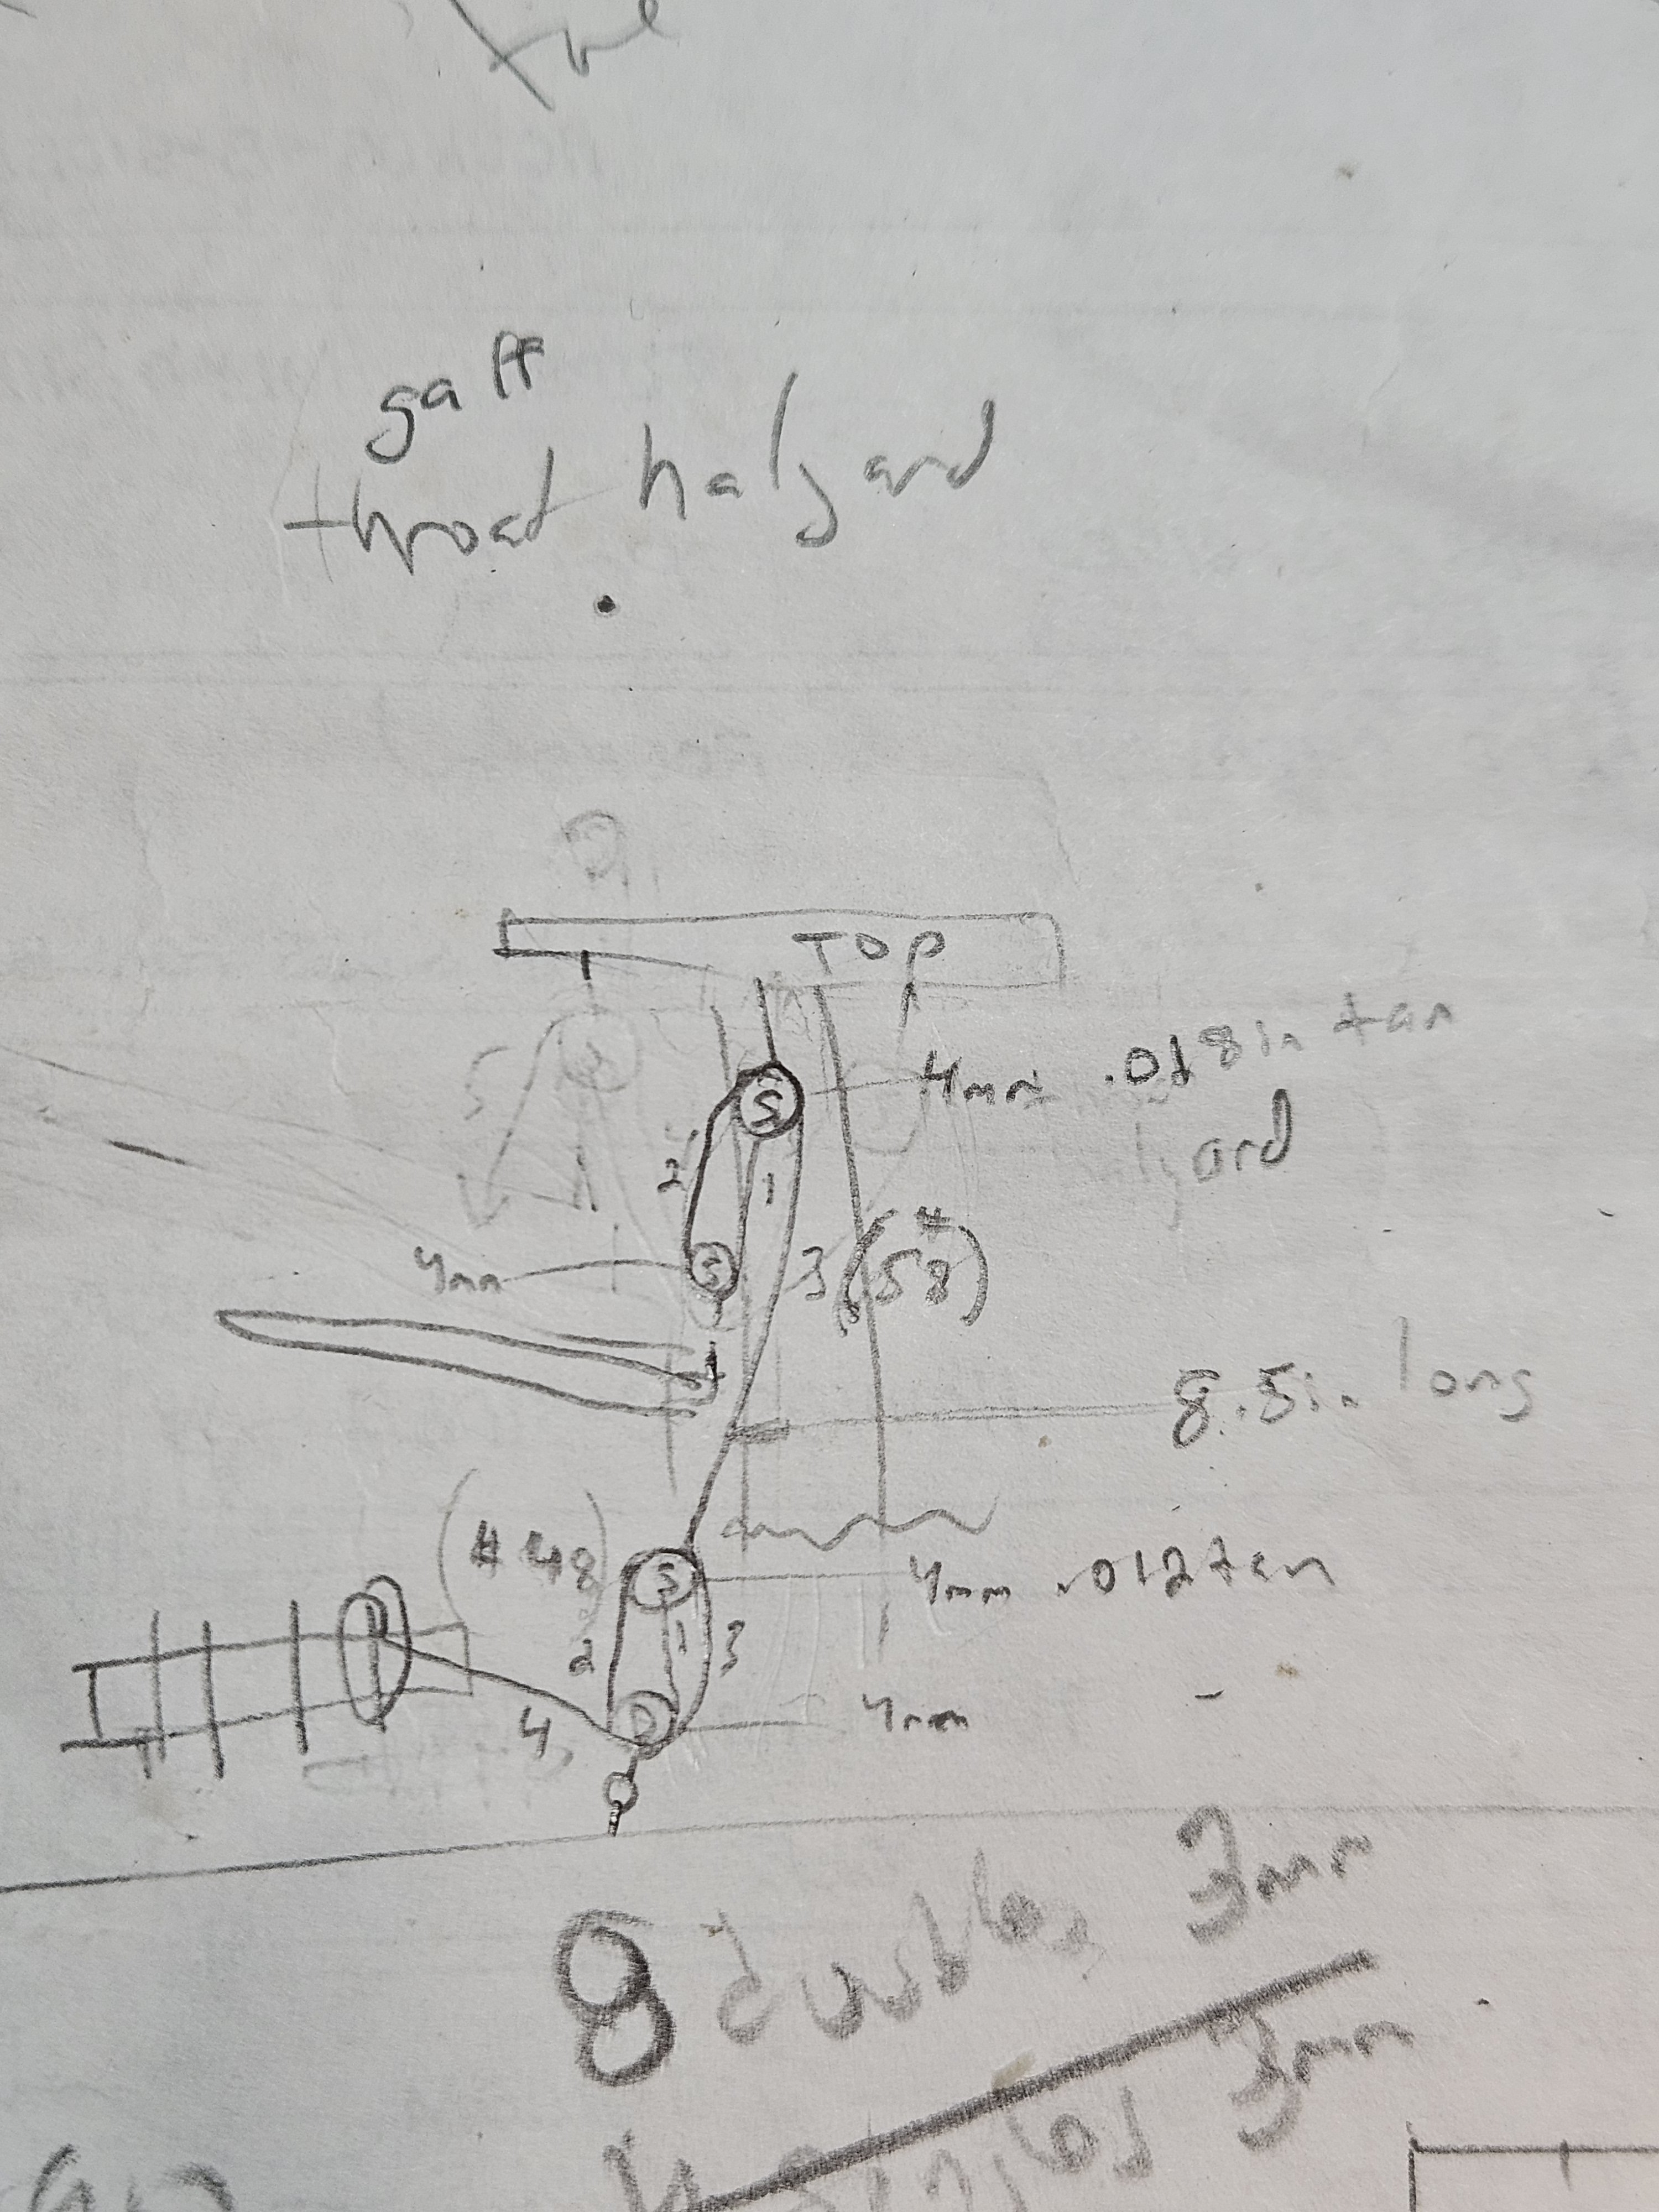 gaff
throat halyard
TOP
4mm .018in tan
S
2
1
yard
4mm
S
3
(58#)
8.5in long
(#48)
S
4mm .012 tan
2
1
3
4
D
4mm
8 doubles 3mm
3mm